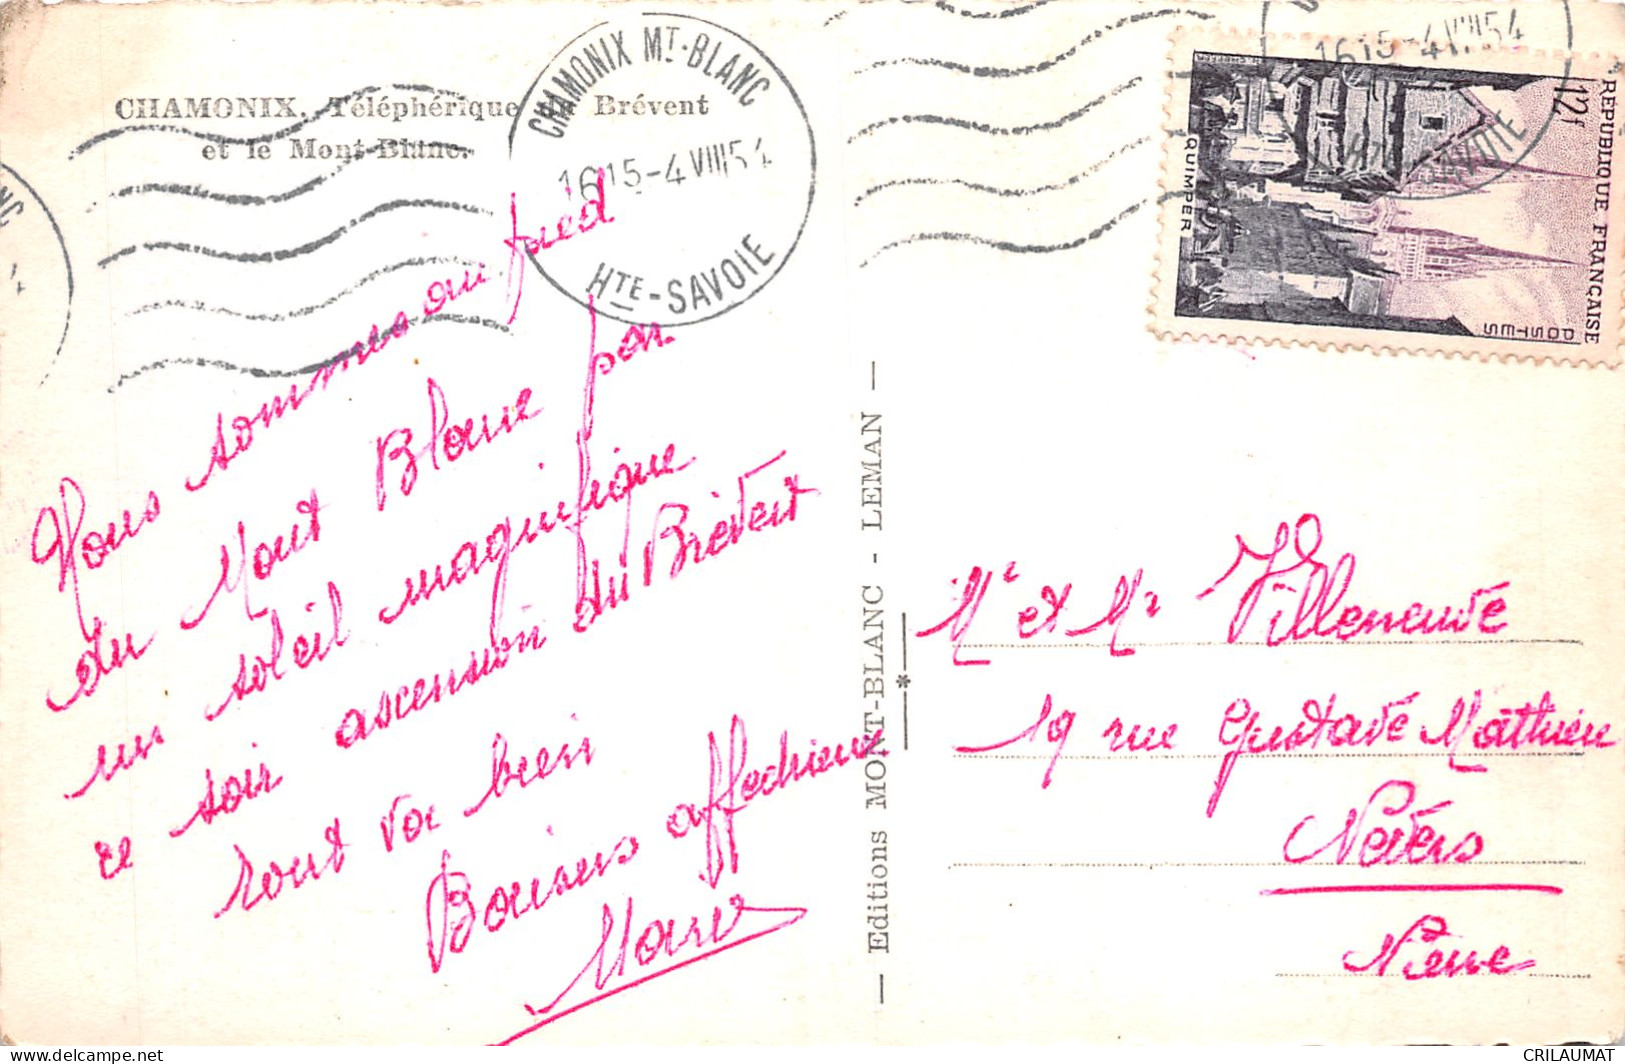 CHAMONIX. Téléphérique du Brévent
et le Mont-Blanc.
CHAMONIX MT-BLANC
1615-4 VIII 54
HTE-SAVOIE
1615-4 VIII 54
HTE-SAVOIE
RÉPUBLIQUE FRANÇAISE
12f
POSTES
QUIMPER
Nous sommes au pied
du Mont Blanc par
un soleil magnifique
ce soir ascension du Brévent
tout va bien
Baisers affectueux
— Editions MONT-BLANC - LEMAN —
Mr et Me Villeneuve
19 rue Gustave Mathieu
Nevers
Nièvre
CRILAUMAT